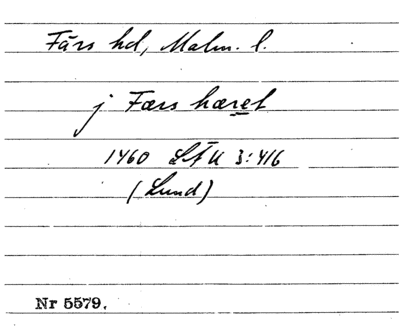 Färs hd, Malm. l.
j Færs hæret
1460 LÄU 3:416
(Lund)
Nr 5579.